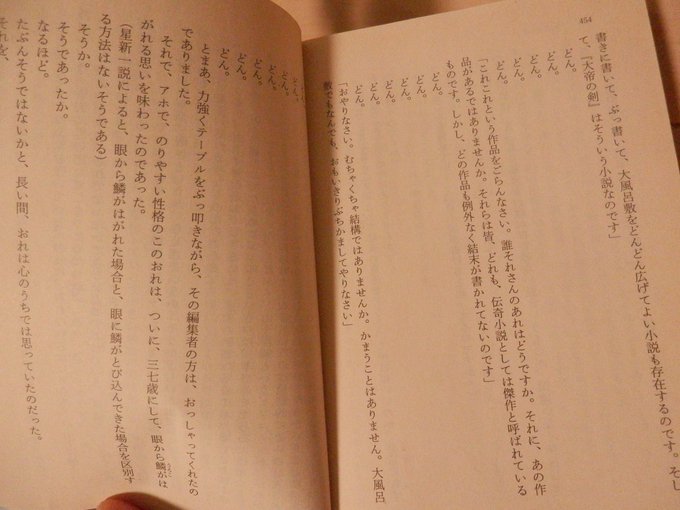 454
書きに書いて、ぶっ書いて、大風呂敷をどんどん広げてよい小説も存在するのです。そし
て、『大帝の剣』はそういう小説なのです」
どん。
どん。
どん。
どん。
「これこれという作品をごらんなさい。誰それさんのあれはどうですか。それに、あの作
品があるではありませんか。それらは皆、どれも、伝奇小説としては傑作と呼ばれている
ものです。しかし、どの作品も例外なく結末が書かれてないのです」
どん。
どん。
どん。
どん。
「おやりなさい。むちゃくちゃ結構ではありませんか。かまうことはありません。大風呂
敷でもなんでも、おもいきりぶちかましてやりなさい」
どん。
どん。
どん。
どん。
どん。
とまあ、力強くテーブルをぶっ叩きながら、その編集者の方は、おっしゃってくれたの
でありました。
それで、アホで、のりやすい性格のこのおれは、ついに、三七歳にして、眼から鱗がは
がれる思いを味わったのであった。
(星新一説によると、眼から鱗がはがれた場合と、眼に鱗がとび込んできた場合を区別す
る方法はないそうである)
そうか。
そうであったか。
なるほど。
たぶんそうではないかと、長い間、おれは心のうちでは思っていたのだった。
それを、